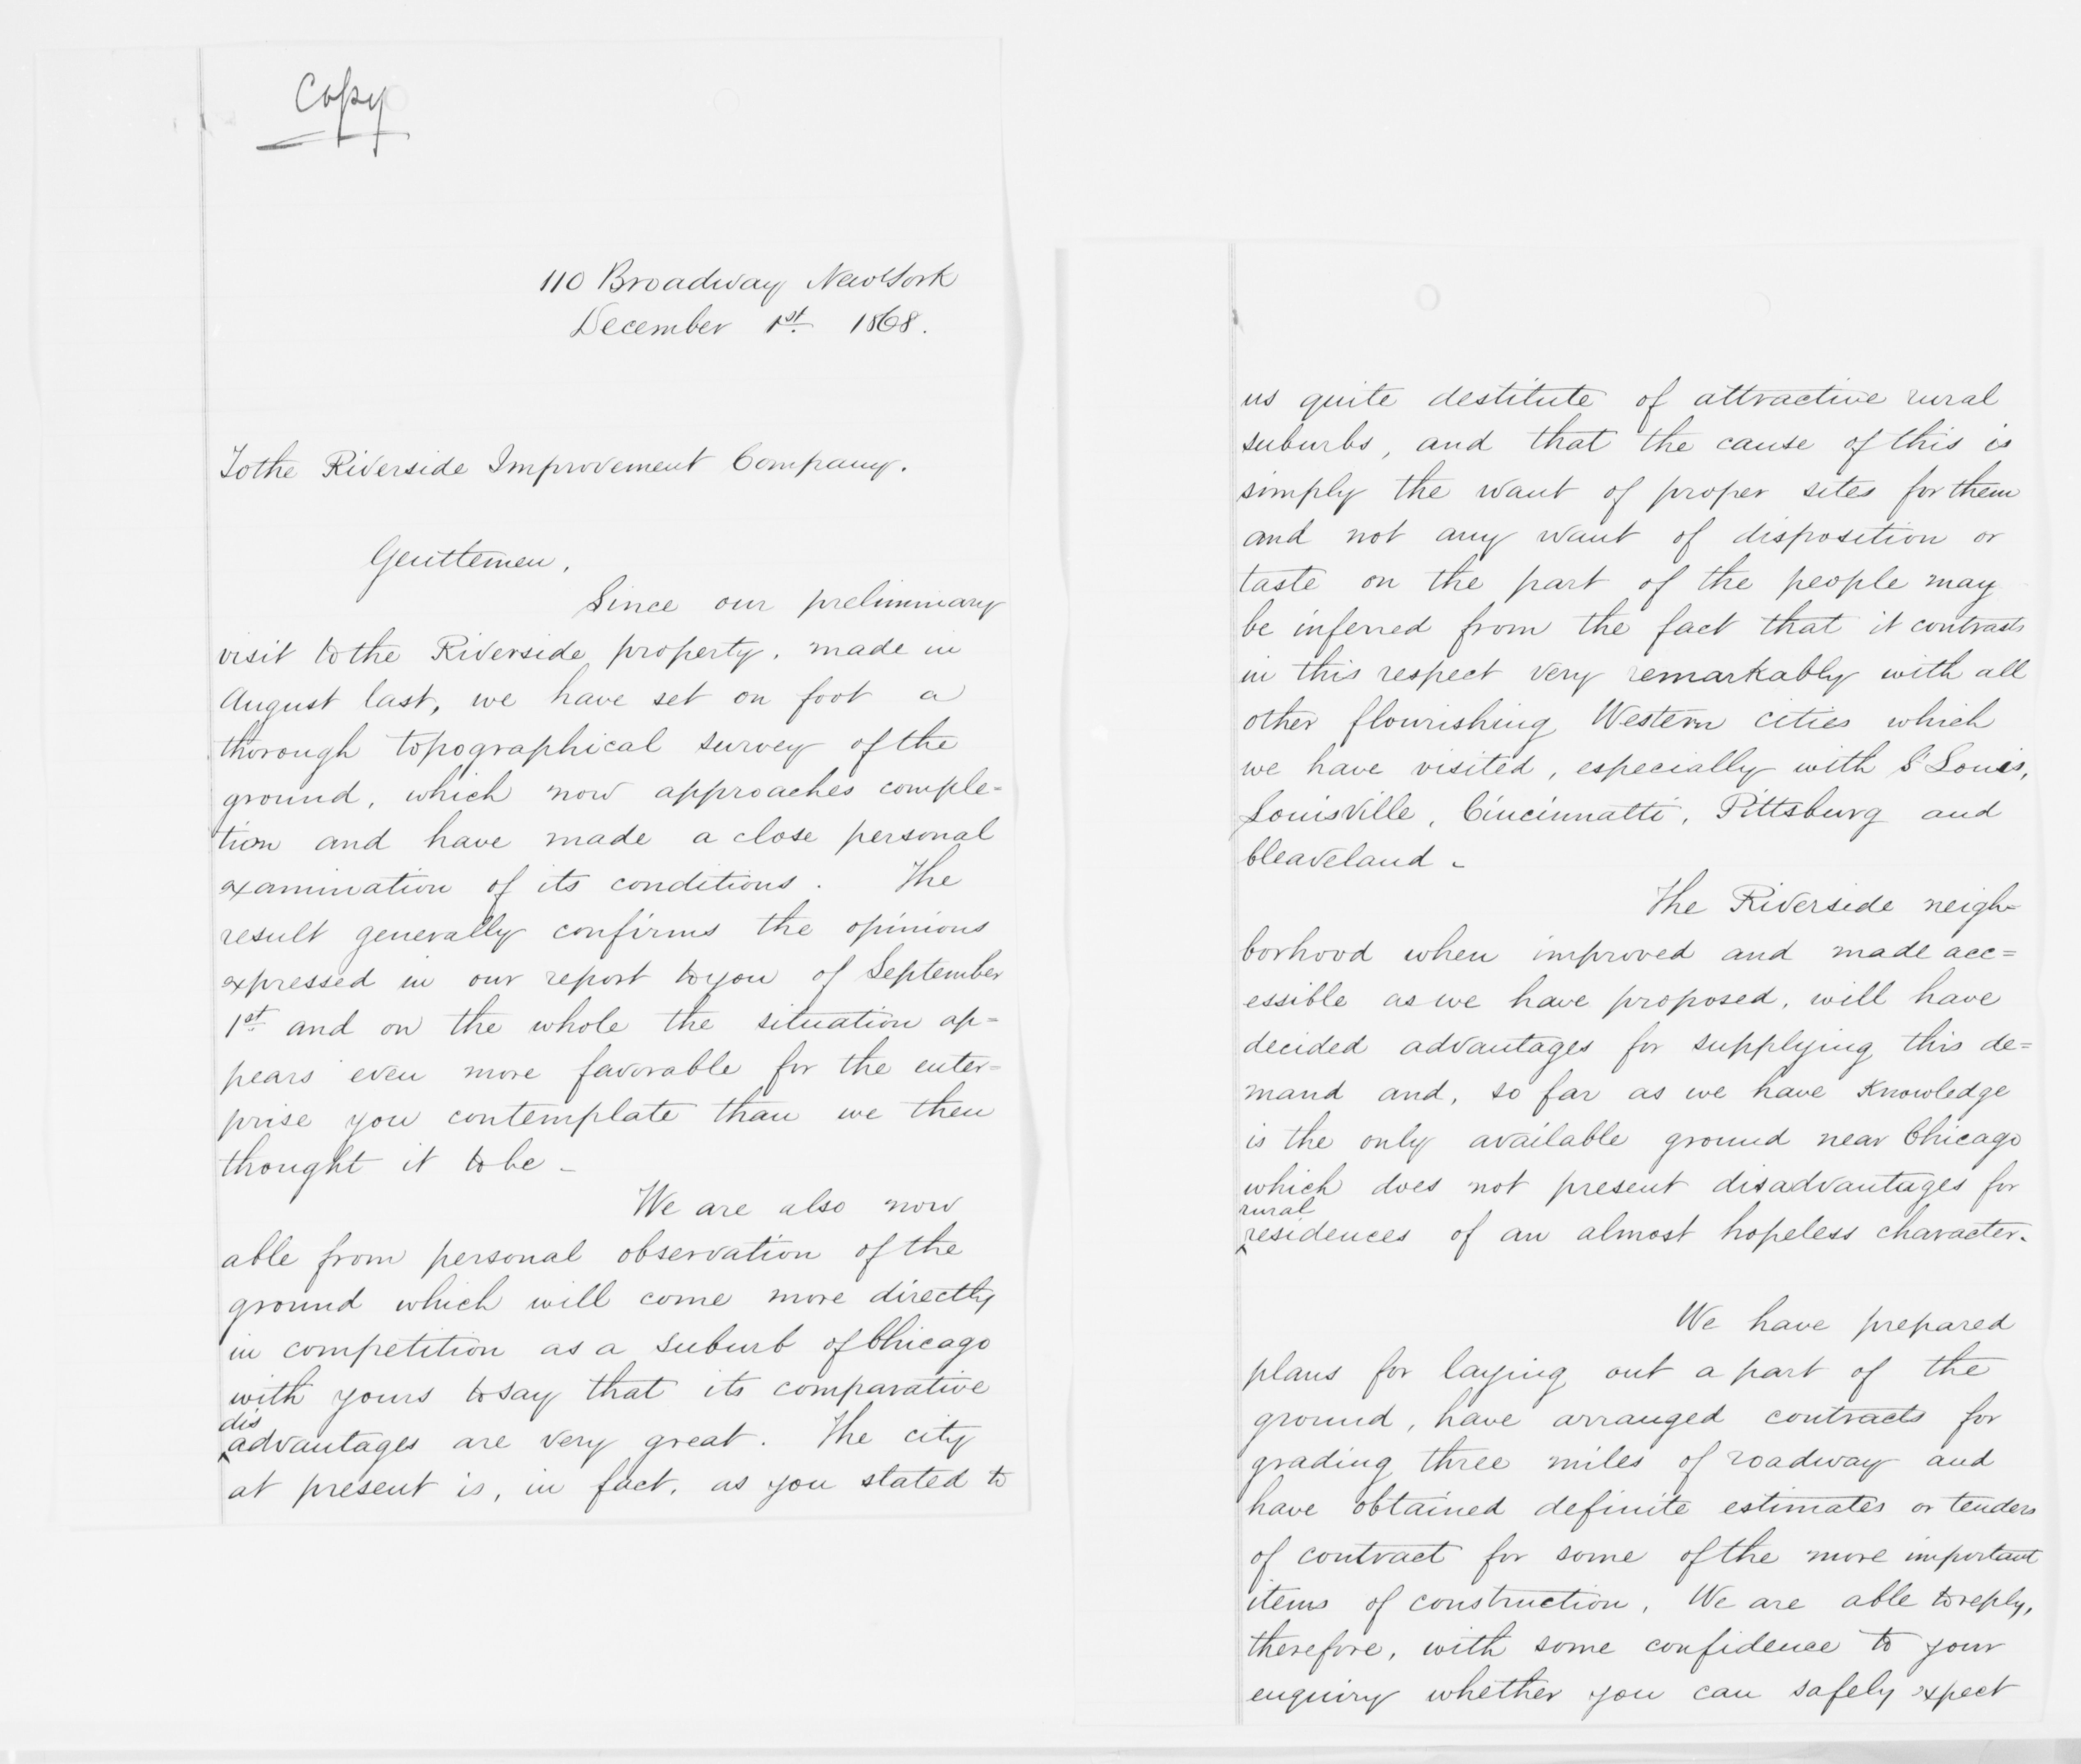 Copy
110 Broadway New York
December 1st 1868.
To the Riverside Improvement Company.
Gentlemen,
Since our preliminary
visit to the Riverside property, made in
August last, we have set on foot a
thorough topographical survey of the
ground, which now approaches comple=
tion and have made a close personal
examination of its conditions. The
result generally confirms the opinions
expressed in our report to you of September
1st and on the whole the situation ap=
pears even more favorable for the enter=
prise you contemplate than we then
thought it to be -
We are also now
able from personal observation of the
ground which will come more directly
in competition as a suburb of Chicago
with yours to say that its comparative
dis
advantages are very great. The city
at present is, in fact, as you stated to
us quite destitute of attractive rural
suburbs, and that the cause of this is
simply the want of proper sites for them
and not any want of disposition or
taste on the part of the people may
be inferred from the fact that it contrasts
in this respect very remarkably with all
other flourishing Western cities which
we have visited, especially with St Louis,
Louisville, Cincinnatti, Pittsburg and
Cleaveland -
The Riverside neigh=
borhood when improved and made acc=
essible as we have proposed, will have
decided advantages for supplying this de=
mand and, so far as we have Knowledge
is the only available ground near Chicago
which does not present disadvantages for
rural
residences of an almost hopeless character.
We have prepared
plans for laying out a part of the
ground, have arranged contracts for
grading three miles of roadway and
have obtained definite estimates or tenders
of contract for some of the more important
items of construction. We are able to reply,
therefore, with some confidence to your
enquiry whether you can safely expect